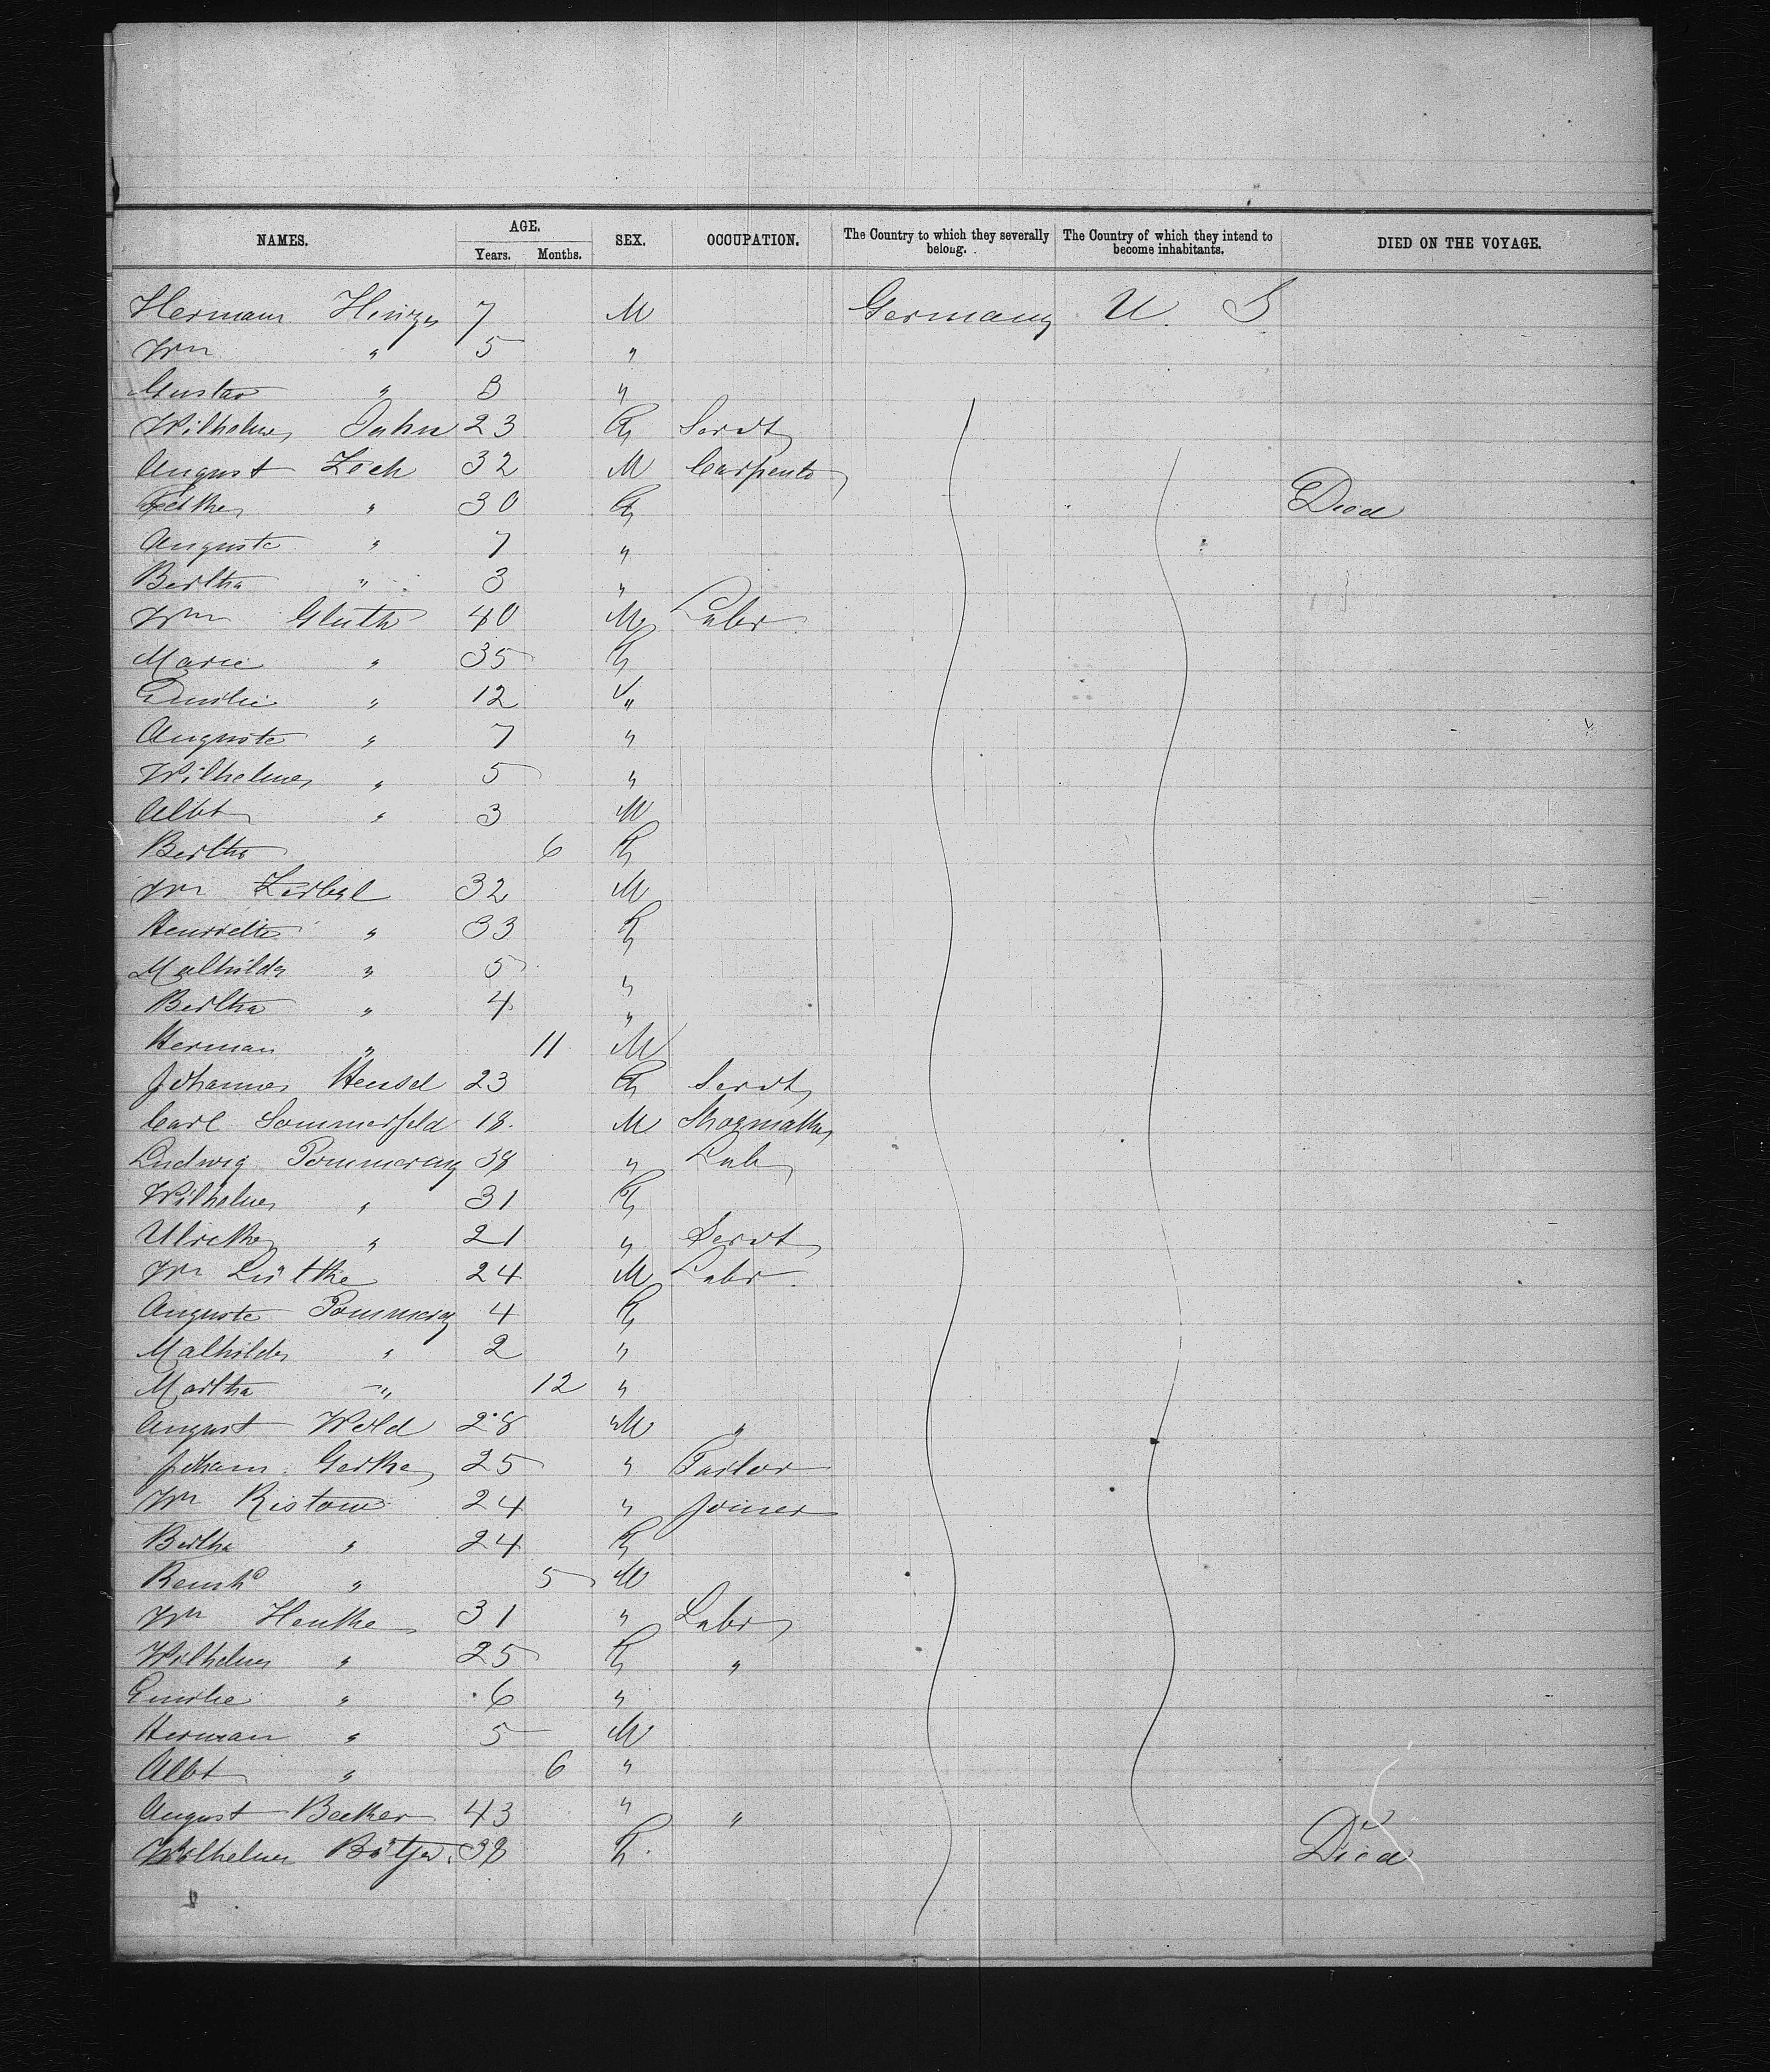 NAMES. AGE. SEX. OCCUPATION. The Country to which they severally belong. The Country of which they intend to become inhabitants. DIED ON THE VOYAGE.
Years. Months.
Hermann Hinze 7 M Germany U. S
Wm " 5 "
Gustav " 3 "
Wilhelmine Jahn 23 F Servt
August Zech 32 M Carpenter
30 F Died
Auguste " 7 "
Bertha " 3 "
Wm Gluth 40 M Labr
Marie " 35 F
Emilie " 12 "
Auguste " 7 "
Wilhelme " 5 "
Albt " 3 M
Bertha 6 F
Wm Zerbel 32 M
Henriette " 33 F
Mathilde " 5 "
Bertha " 4 "
Herman " 11 M
Johanne Hensel 23 F Servt
Carl Sommerfeld 18 M Shoemaker
Ludwig Pommereng 38 " Lab
Wilhelme " 31 F
Ulrike " 21 " Servt
Wm Lüthke 24 M Labr
Auguste Pommereng 4 F
Mathilde " 2 "
Martha " 12 "
August Wild 28 M "
Johann Gerke 25 " Tailor
Wm Ristow 24 " Joiner
Bertha " 24 F
Reinhd " 5 M
Wm Henke 31 " Labr
Wilhelme " 25 F "
Emilie " 6 "
Herman " 5 M
Albt " 6 "
August Becker 43 " "
Wilhelmen 38 F Died